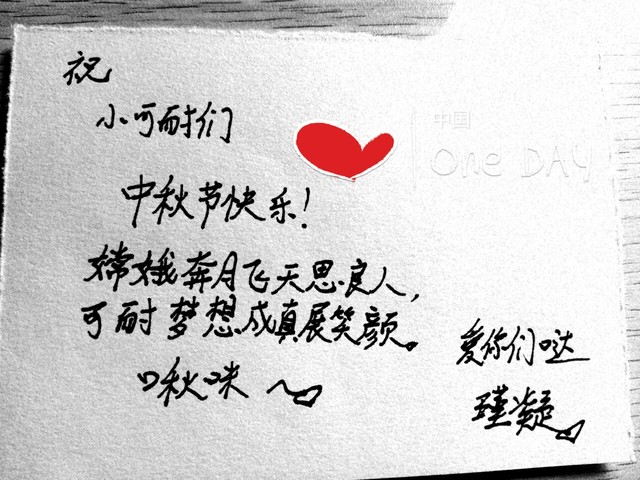 祝
小可耐们
中国
One DAY
中秋节快乐!
嫦娥奔月飞天思良人,
可耐梦想成真展笑颜。
啾咪~
爱你们哒
瑾凝